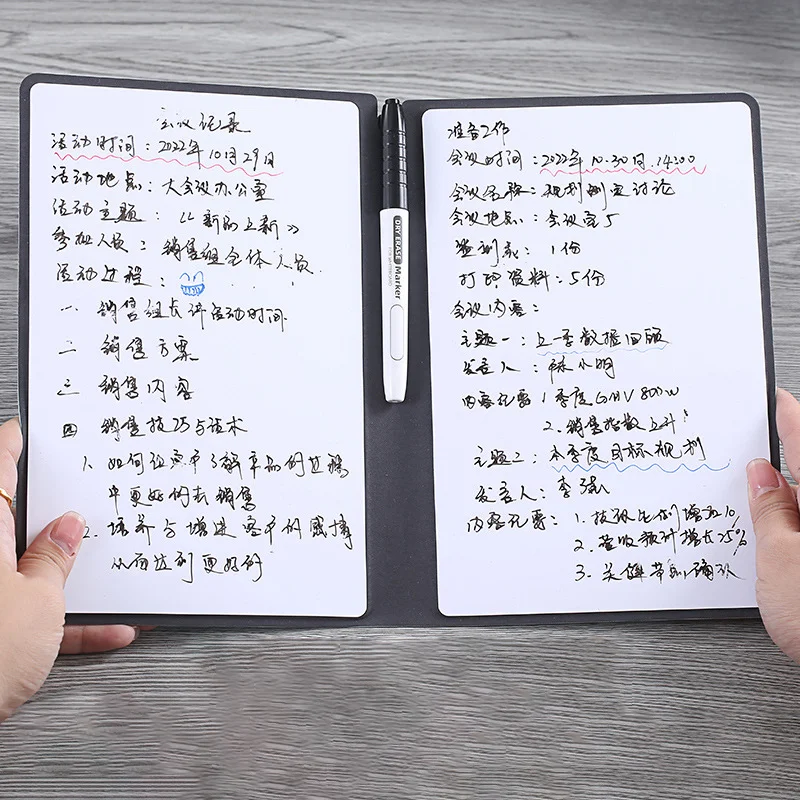 会议记录
活动时间：2022年10月29日
活动地点：大会议办公室
活动主题：《新品上新》
参加人员：销售组全体人员
活动过程：
一 销售组长讲活动时间
二 销售方案
三 销售内容
四 销售技巧与话术
1. 如何让客户了解产品的过程
中更好的去销售
2. 培养与增进客户的感情
从而达到更好的
DRY ERASE Marker
准备工作
会议时间：2022年10.30日.14:00
会议名称：规划制定讨论
会议地点：会议室5
签到表：1份
打印资料：5份
会议内容：
主题一：上一季数据回顾
发言人：陈小明
内容纪要 1季度GMV 800W
2. 销售指数上升
主题二：本季度目标规划
发言人：李强
内容纪要：1. 比例增加10%
2. 营收预计增长25%
3.